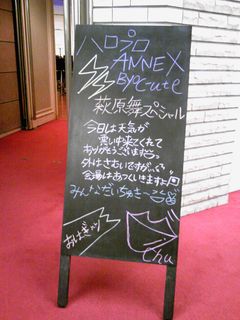 ハロプロ
ANNEX
By℃-ute
萩原舞スペシャル
今日は天気が
悪い中来てくれて
ありがとうございますっ
外はさむいですが
会場はあつくいきますよ
みんなだいちゅきー
おはぎ
Chu